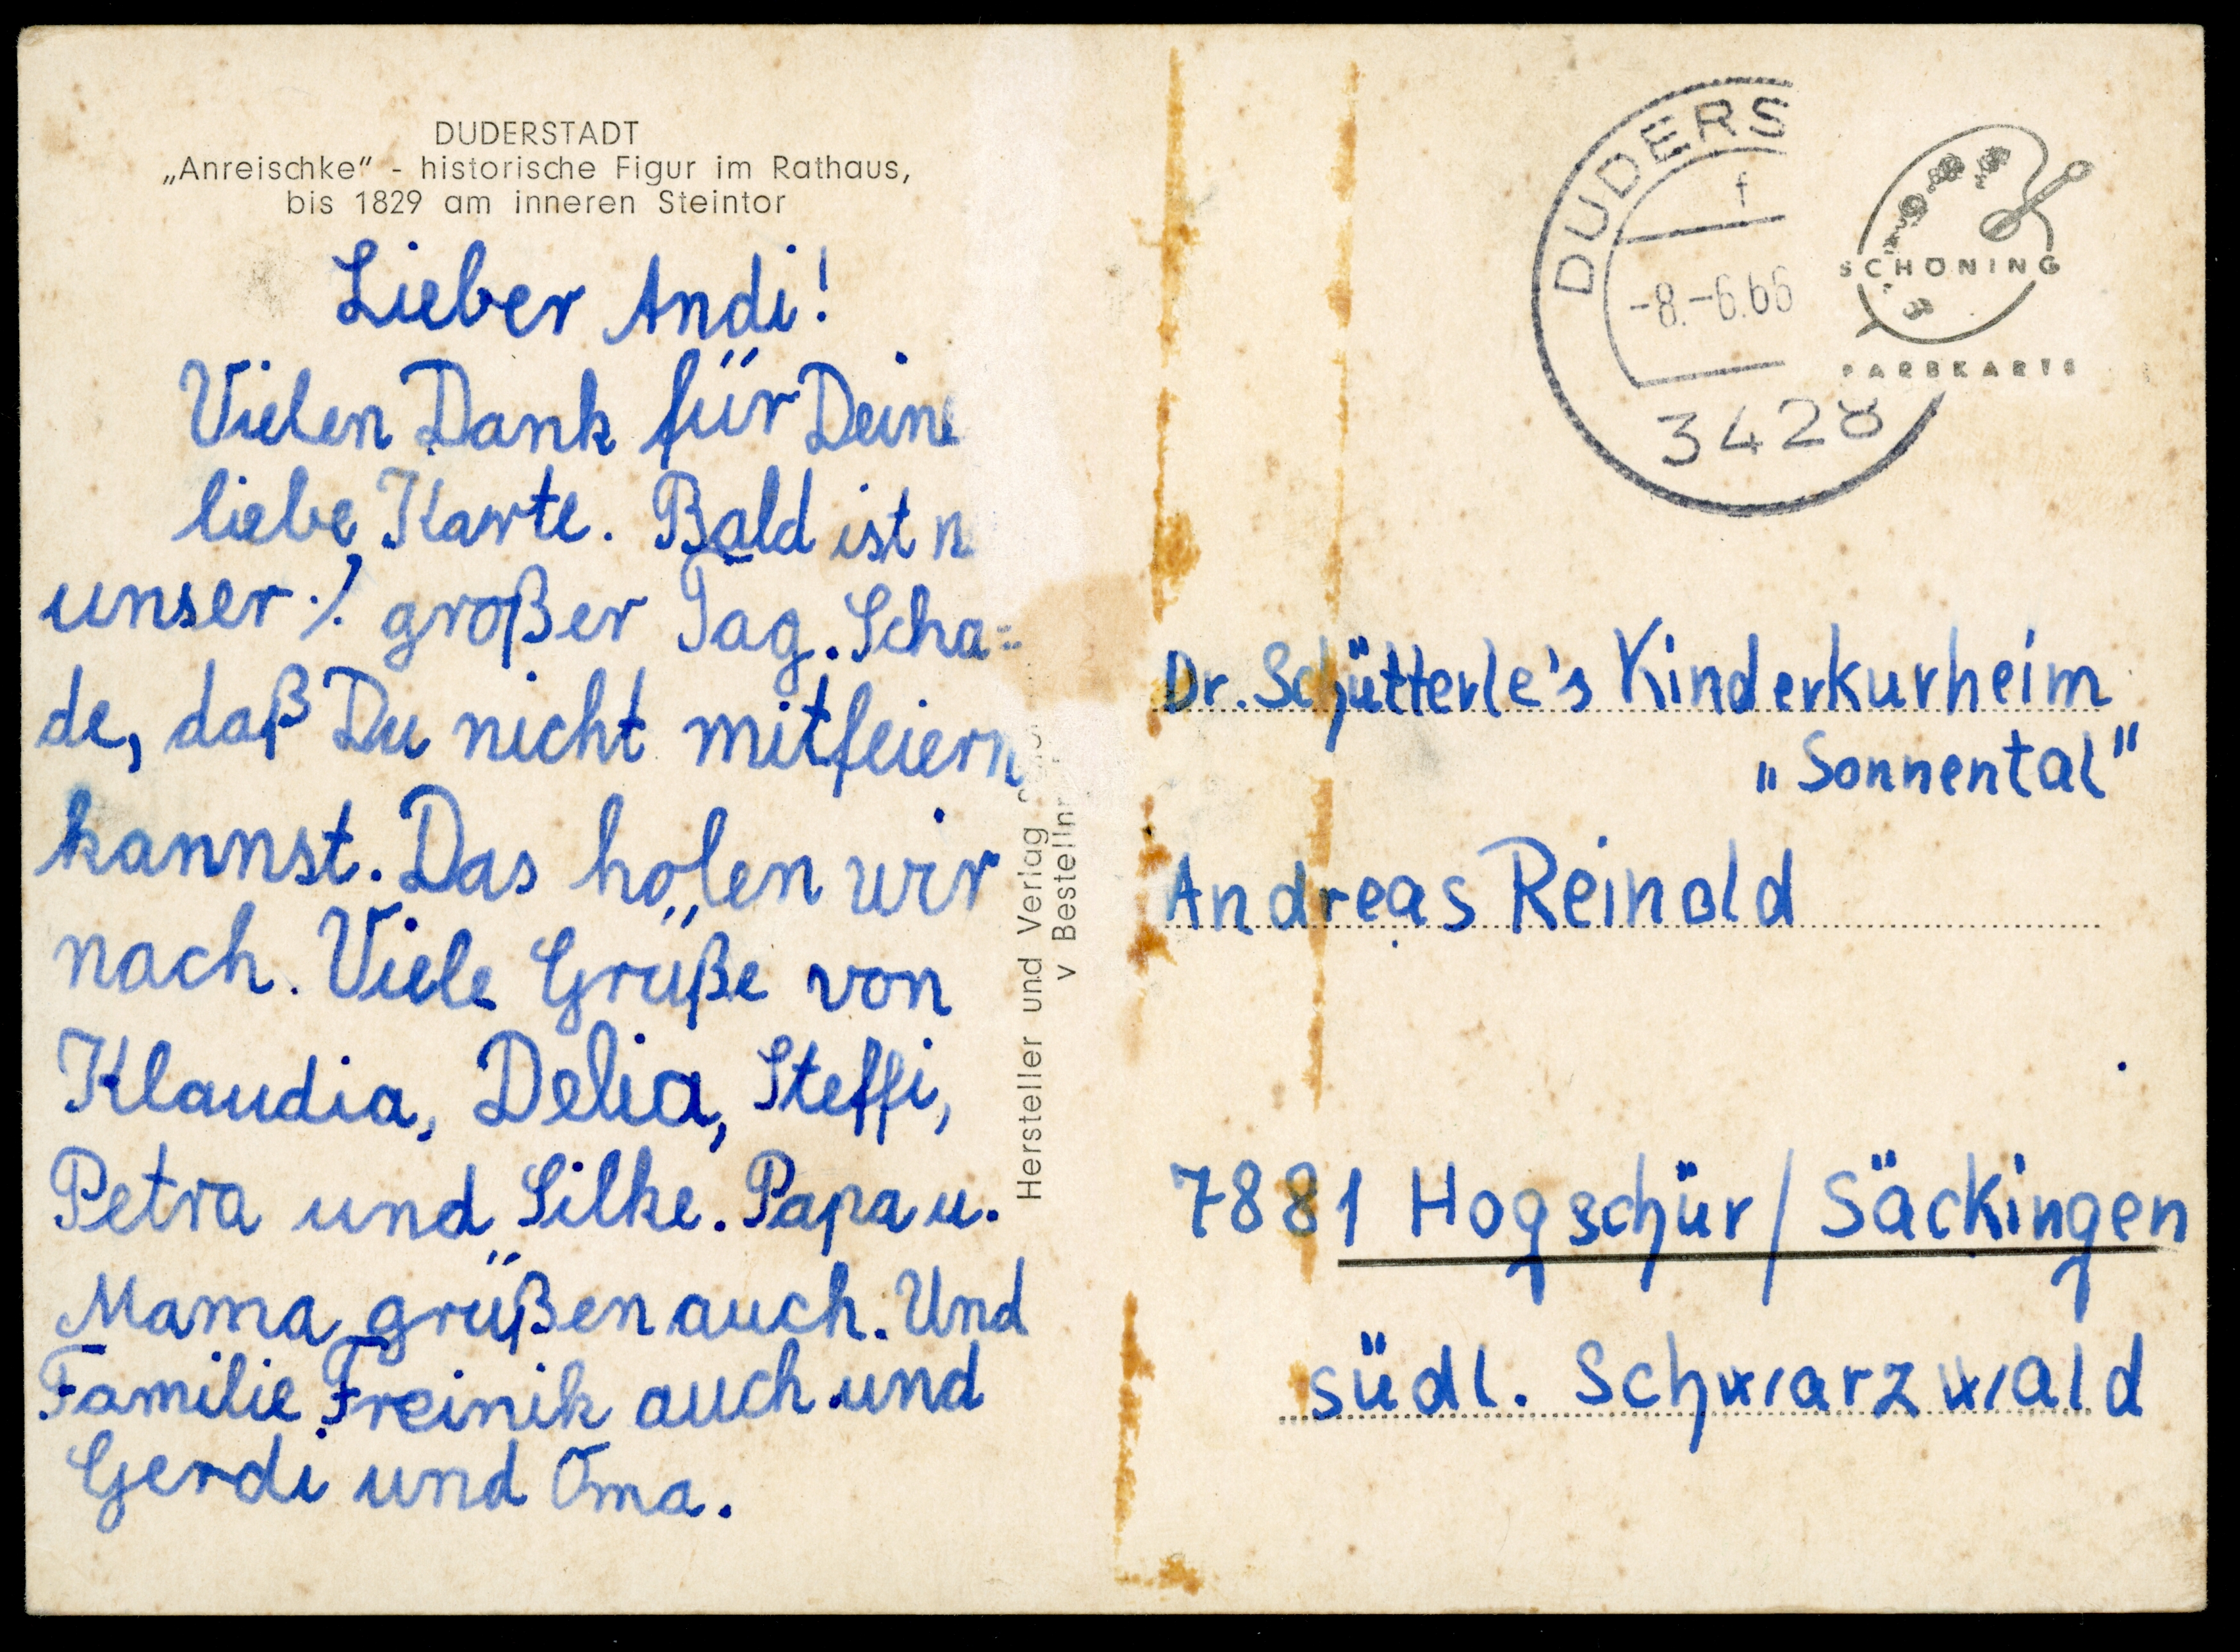 DUDERSTADT
„Anreischke" - historische Figur im Rathaus,
bis 1829 am inneren Steintor
Lieber Andi!
Vielen Dank für Deine
liebe Karte. Bald ist
unser großer Tag. Scha=
de, daß Du nicht mitfeiern
kannst. Das holen wir
nach. Viele Grüße von
Klaudia, Delia, Steffi,
Petra und Silke. Papa u.
Mama grüßen auch. Und
Familie Freinik auch und
Gerdi und Oma.
Hersteller und Verlag
v Bestellnr
DUDERS
f
-8.-6.66
3428
SCHÖNING
FARBKARTE
Dr. Schütterle's Kinderkurheim
„Sonnental"
Andreas Reinold
7881 Hogschür / Säckingen
südl. Schwarzwald